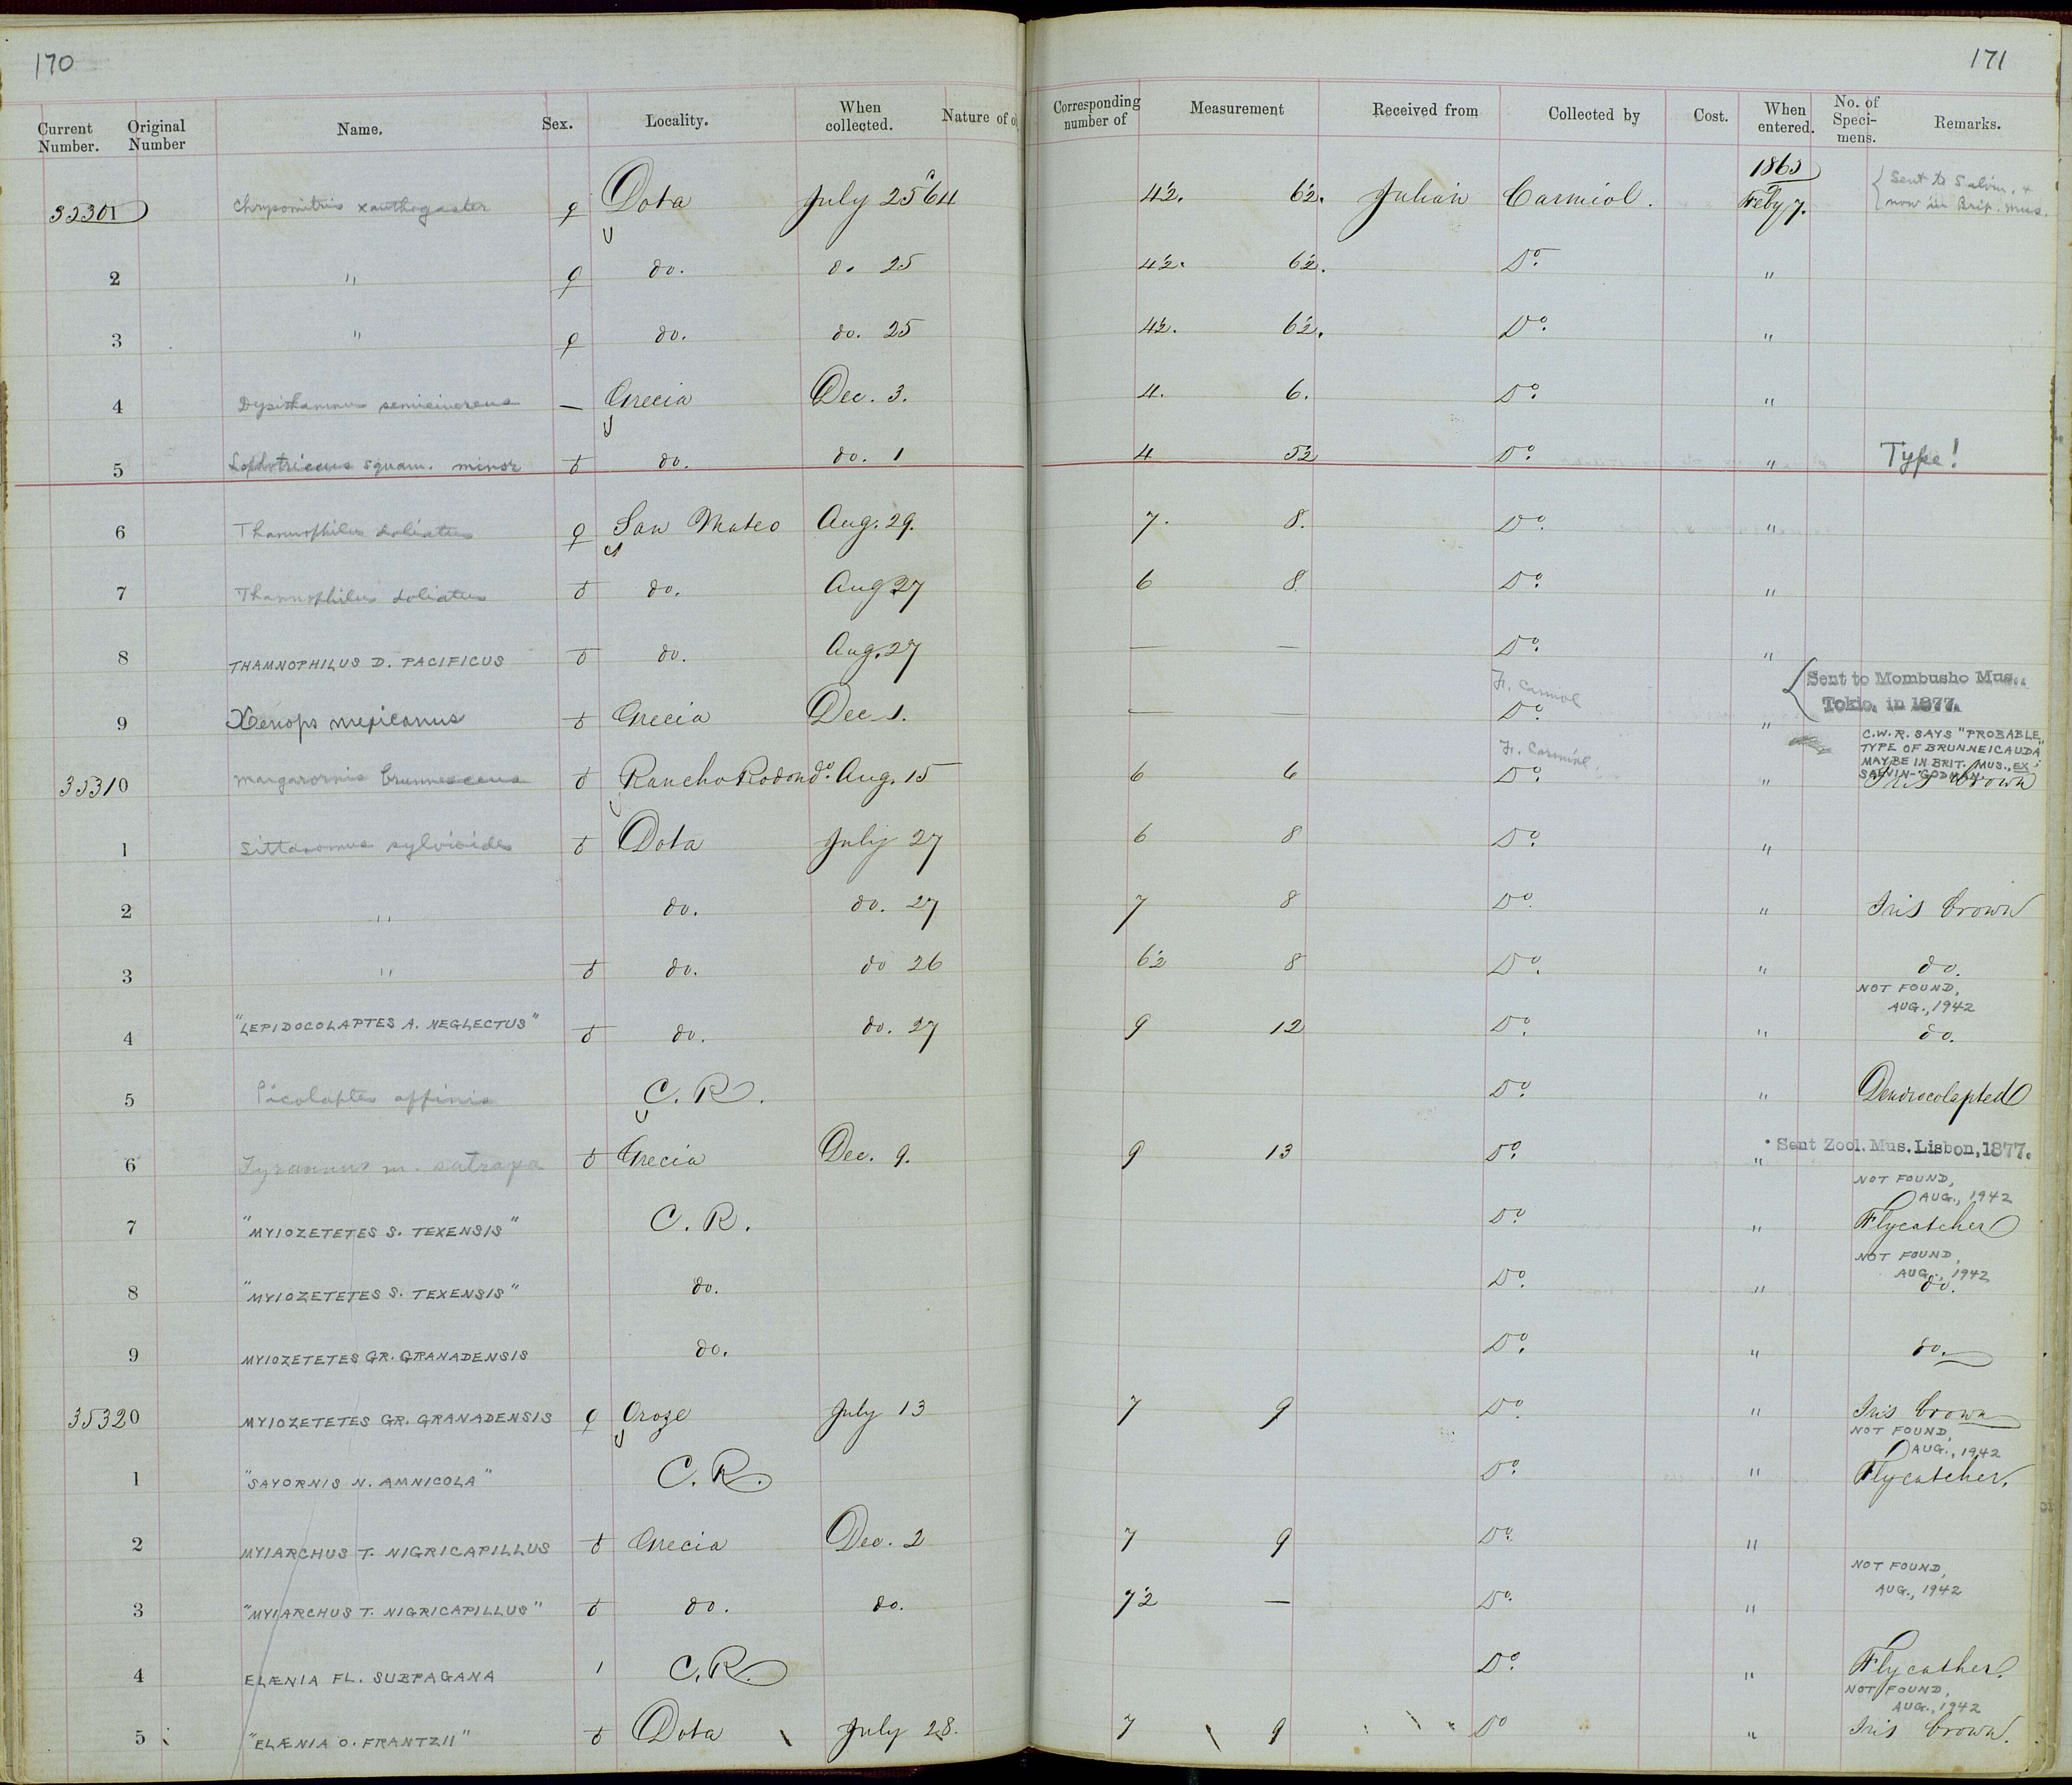 170
171
Current Number. Original Number Name. Sex. Locality. When collected. Nature of o
Corresponding number of Measurement Received from Collected by Cost. When entered. No. of Specimens. Remarks.
1865
35301 Chrysomitris xanthogaster ♀ Dota July 25 '64 4½. 6½. Julian Carmiol. Feby 7. Sent to Salvin. & now in Brit. Mus.
2 " ♀ do. do 25 4½. 6½. Do. "
3 " ♀ do. do. 25 4½. 6½. Do. "
4 Dysithamnus semicinereus — Grecia Dec. 3. 4. 6. Do. "
5 Lophotriccus squam. minor ♂ do. do. 1 4 5½ Do. " Type!
6 Thamnophilus doliatus ♀ San Mateo Aug. 29. 7. 8. Do. "
7 Thamnophilus doliatus ♂ do. Aug 27 6 8 Do. "
8 THAMNOPHILUS D. PACIFICUS ♂ do. Aug. 27 — — Do. "
9 Xenops mexicanus ♂ Grecia Dec 1. — — Fr. Carmiol Do. " Sent to Mombusho Mus., Tokio, in 1877.
C.W.R. SAYS "PROBABLE
TYPE OF BRUNNEICAUDA"
MAY BE IN BRIT. MUS., EX
SALVIN-GODMAN.
35310 Margarornis brunnescens ♂ Rancho Redondo. Aug. 15 6 6 Fr. Carmiol. Do. " Iris brown
1 Sittasomus sylvioides ♂ Dota July 27 6 8 Do. "
2 " do. do. 27 7 8 Do. " Iris brown
3 " ♂ do. do 26 6½ 8 Do. " do.
NOT FOUND, AUG., 1942
4 "LEPIDOCOLAPTES A. NEGLECTUS" ♂ do. do. 27 9 12 Do. " do.
5 Picolaptes affinis C. R. Do. " Dendrocolapted
6 Tyrannus m. satrapa ♂ Grecia Dec. 9. 9 13 Do. " Sent Zool. Mus. Lisbon, 1877.
NOT FOUND, AUG., 1942
7 "MYIOZETETES S. TEXENSIS" C. R. Do. " Flycatcher
NOT FOUND, AUG., 1942
8 "MYIOZETETES S. TEXENSIS" do. Do. " do.
9 MYIOZETETES GR. GRANADENSIS do. Do. " do.
35320 MYIOZETETES GR. GRANADENSIS ♀ Oroze July 13 7 9 Do. " Iris brown
NOT FOUND, AUG., 1942
1 "SAYORNIS N. AMNICOLA" C. R. Do. " Flycatcher.
2 MYIARCHUS T. NIGRICAPILLUS ♂ Grecia Dec. 2 7 9 Do. "
NOT FOUND, AUG., 1942
3 "MYIARCHUS T. NIGRICAPILLUS" ♂ do. do. 7½ — Do. "
4 ELÆNIA FL. SUBPAGANA C. R. Do. " Flycather.
NOT FOUND, AUG., 1942
5 "ELÆNIA O. FRANTZII" ♂ Dota July 28. 7 9 Do " Iris brown.